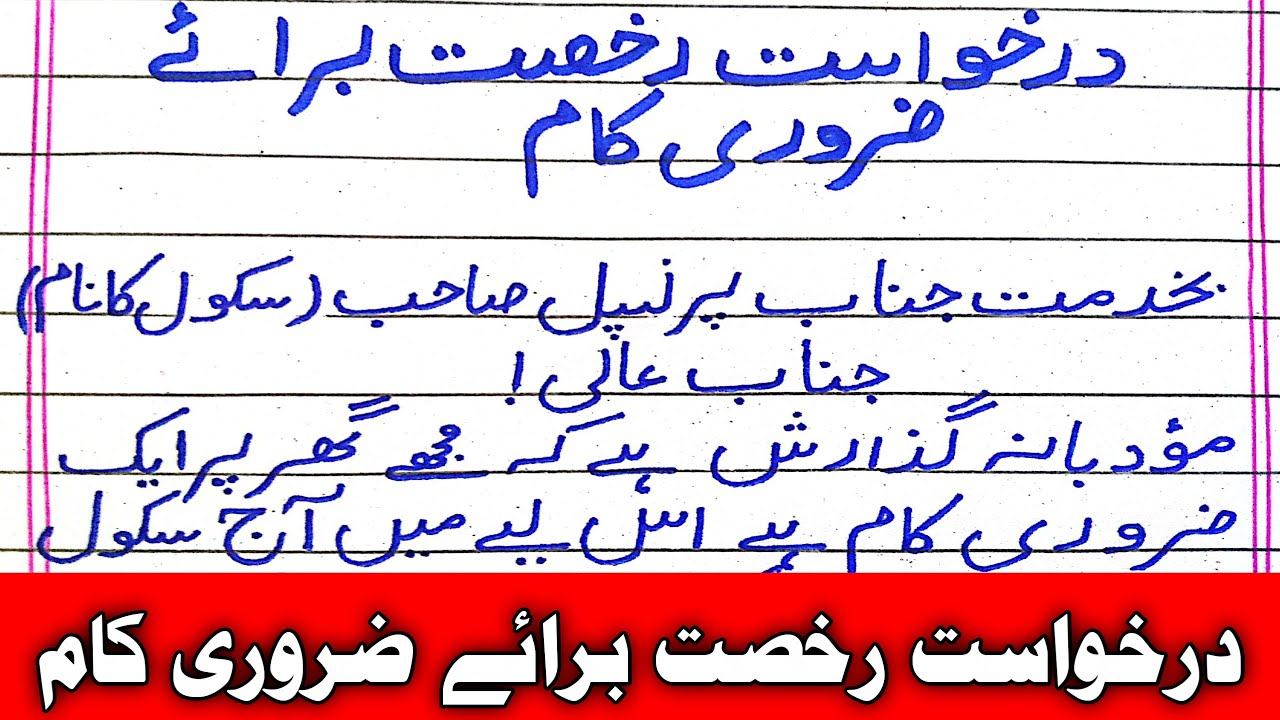 درخواست رخصت برائے
ضروری کام
بخدمت جناب پرنسپل صاحب (سکول کا نام)
جناب عالی !
مؤدبانہ گذارش ہے کہ مجھے گھر پر ایک
ضروری کام ہے اس لیے میں آج سکول
درخواست رخصت برائے ضروری کام